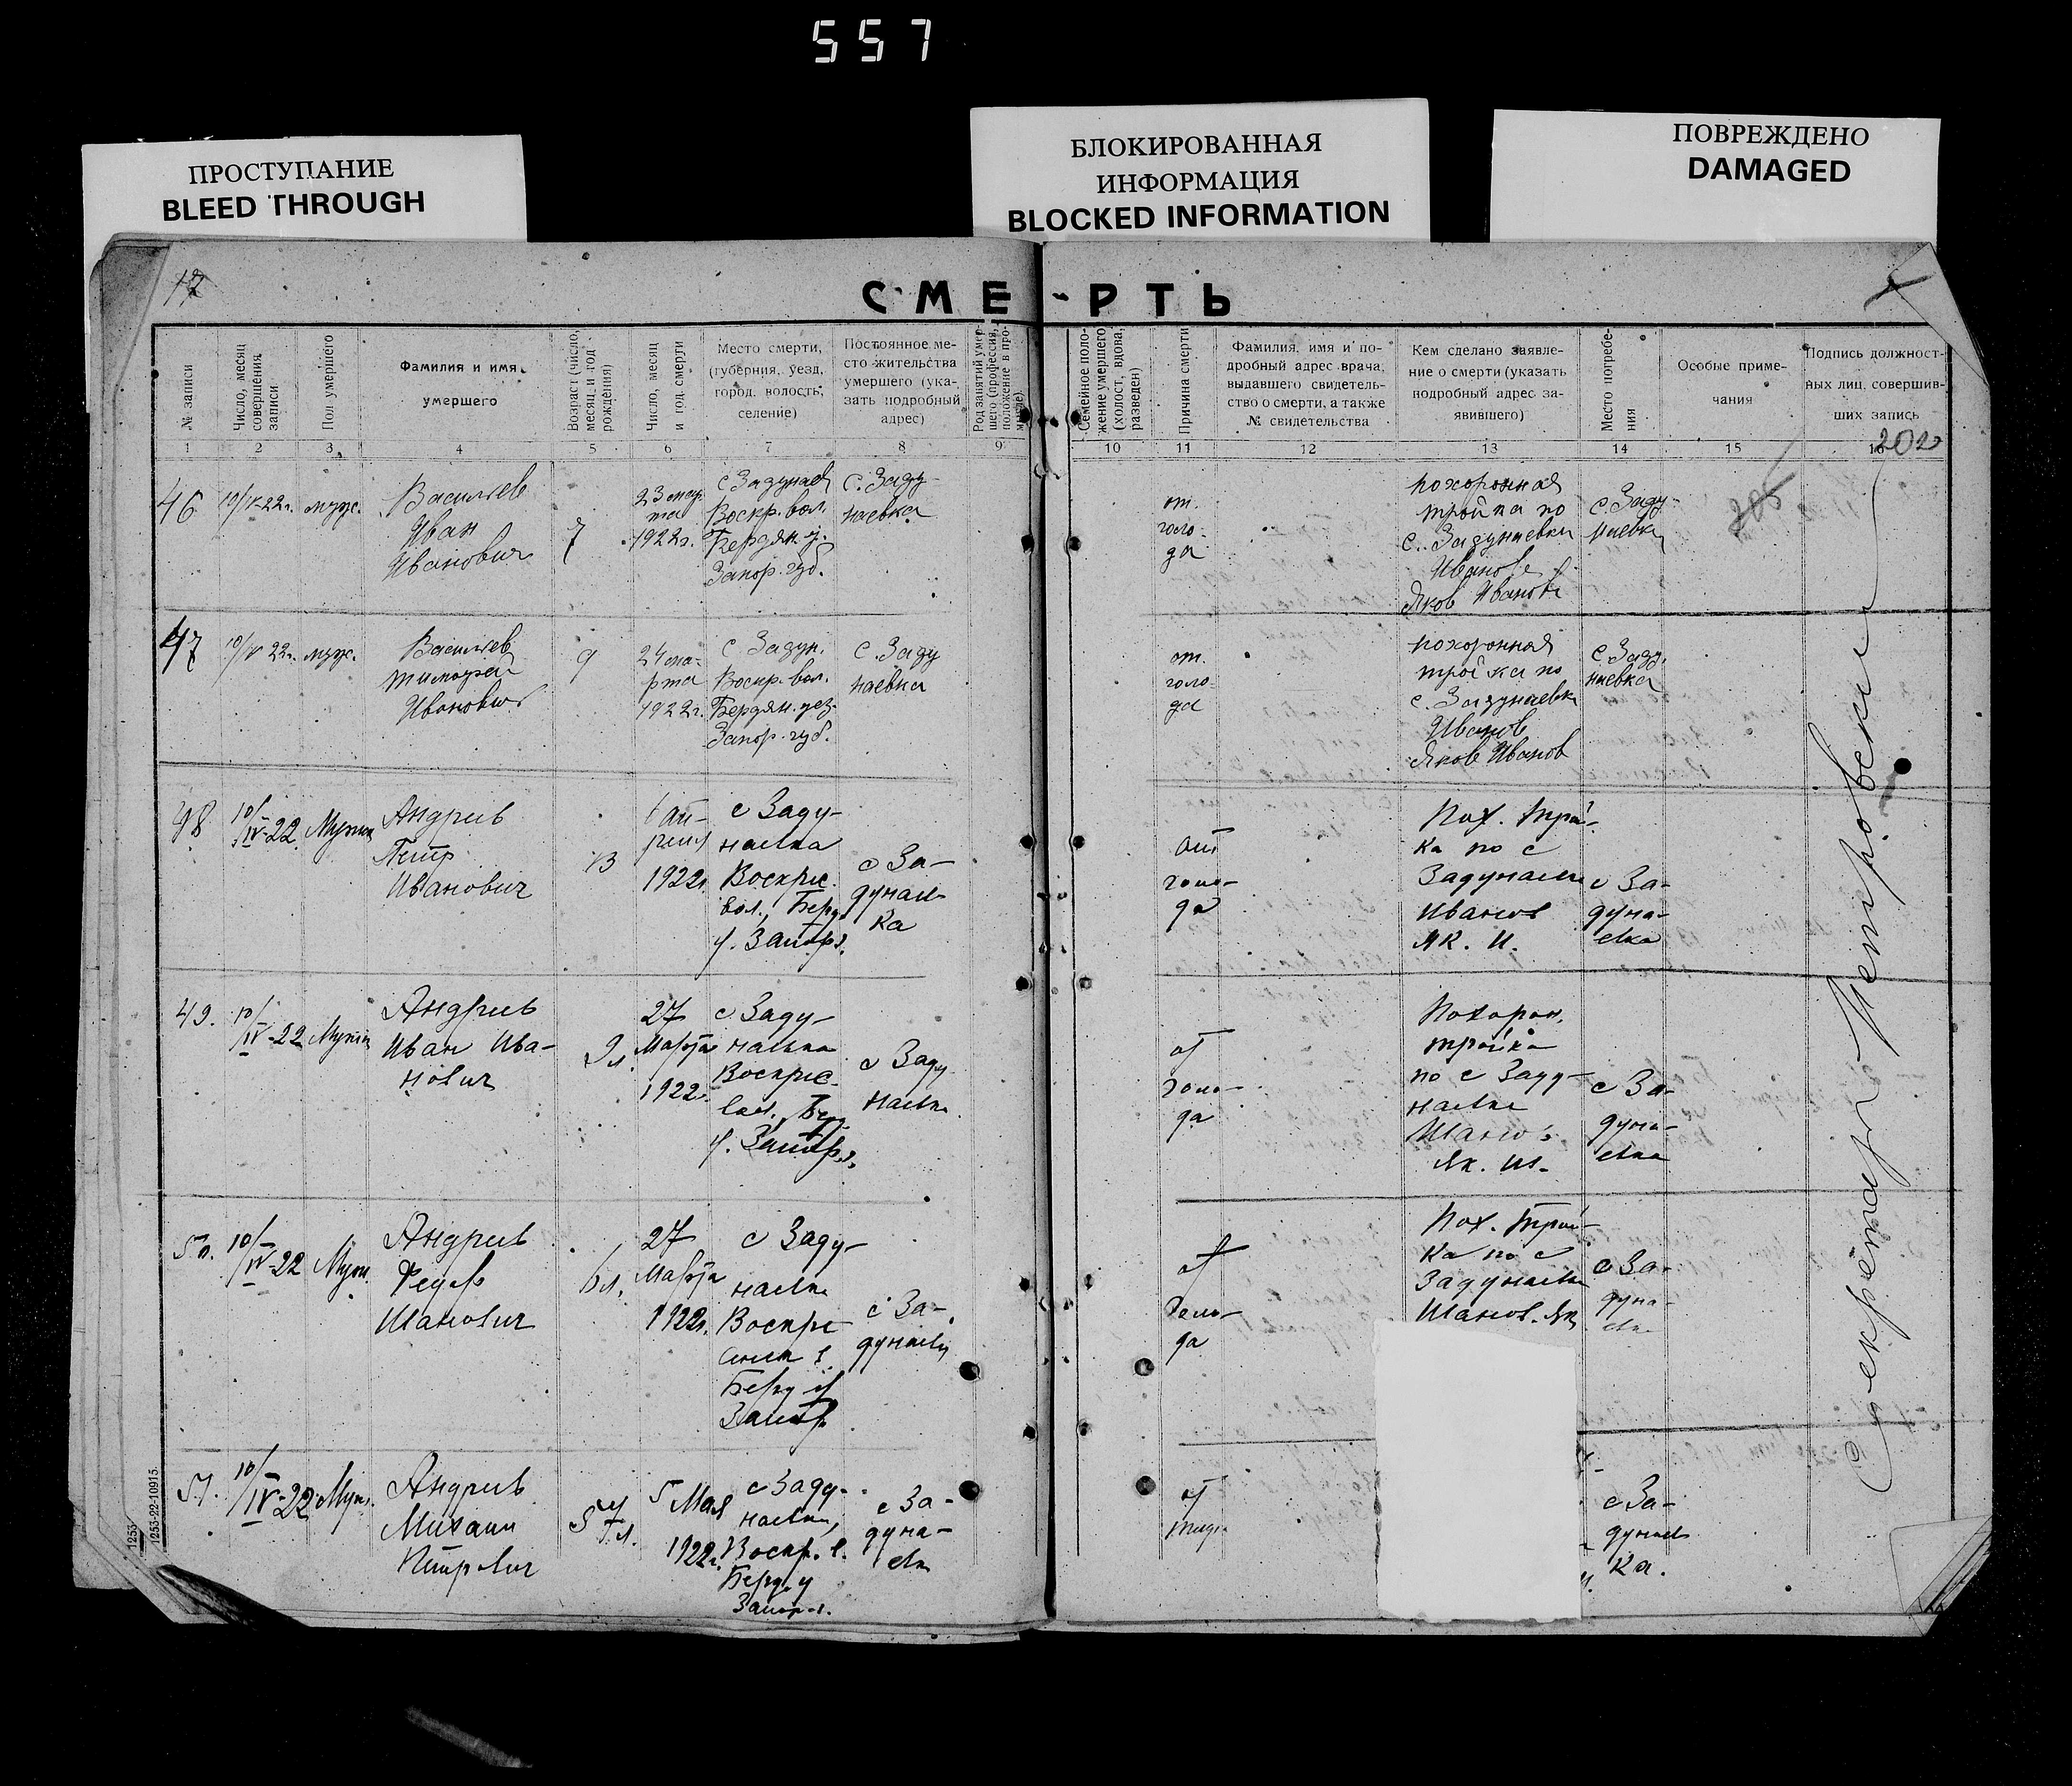 557
ПРОСТУПАНИЕ
BLEED THROUGH
БЛОКИРОВАННАЯ
ИНФОРМАЦИЯ
BLOCKED INFORMATION
ПОВРЕЖДЕНО
DAMAGED
17
СМЕ-РТЬ
№ записи
Число, месяц
совершения
записи
Пол умершего
Фамилия и имя
умершего
Возраст (число,
месяц и год
рождения)
Число, месяц
и год смерти
Место смерти,
(губерния, уезд,
город, волость,
селение)
Постоянное ме-
сто жительства
умершего (ука-
зать подробный
адрес)
Род занятий умер-
шего (профессия,
положение в про-
мысле)
Семейное поло-
жение умершего
(холост, вдова,
разведен)
Причина смерти
Фамилия, имя и по-
дробный адрес врача,
выдавшего свидетель-
ство о смерти, а также
№ свидетельства
Кем сделано заявле-
ние о смерти (указать
подробный адрес за-
явившего)
Место погребе-
ния
Особые приме-
чания
Подпись должност-
ных лиц, совершив-
ших запись
1 2 3 4 5 6 7 8 9 10 11 12 13 14 15 16
202
46
10/IV-22г.
муж.
Васильев
Иван
Иванович
7
23 мар
та
1922г.
с Задунаев
Воскр. вол.
Бердян. у.
Запор. губ.
С. Заду-
наевка
от
голо-
да
похоронная
тройка по
с. Задунаевки
Иванов
Яков Иванов
с. Заду-
наевка
205
47
10/IV 22г.
муж.
Васильев
Тимофей
Иванович
9
24 ма-
рта
1922г.
с Задун.
Воскр. вол.
Бердян. уез.
Запор. губ.
с. Заду
наевка
от
голо-
да
похоронная
тройка по
с. Задунаевки
Иванов
Яков Иванов
с. Заду.
наевка
48
10/IV-22
Мужск
Андреев
Петр
Иванович
13
1 ап-
реля
1922г.
с Заду-
наевка
Воскрес.
вол., Берд.
у. Запор. г.
с За-
дунаев
ка
от
голо-
да
Пох. трой-
ка по с
Задунаевке
Иванов
Як. И.
с За-
дуна-
евка
49.
10/IV-22
Мужск
Андреев
Иван Ива-
нович
9 л.
27
Марта
1922г.
с Заду-
наевка
Воскрес.
вол., Берд
у. Запор. г.
с Заду
наевка
от
голо-
да
Похорон.
тройка
по с Заду-
наевке
Иванов
Як. Ив.
с За-
дуна-
евка
50.
10/IV-22
Муж.
Андреев
Федор
Иванович
6 л.
27
Марта
1922г.
с Заду-
наевка
Воскре
Берд у
Запор
с За-
дунаевка
от
голо-
да
Пох. трой-
ка по с
Задунаевке
Иванов. Як
с За-
дуна-
евка
51.
10/IV-22
Муж.
Андреев
Михаил
Петрович
5 Мая
1922г.
с Заду-
наевка,
Воскр. в.
Берд. у
Запор. г.
с За-
дуна-
евка
от
с За-
дунаев
ка.
Секретарь Петровский
1253
1253-22-10915.